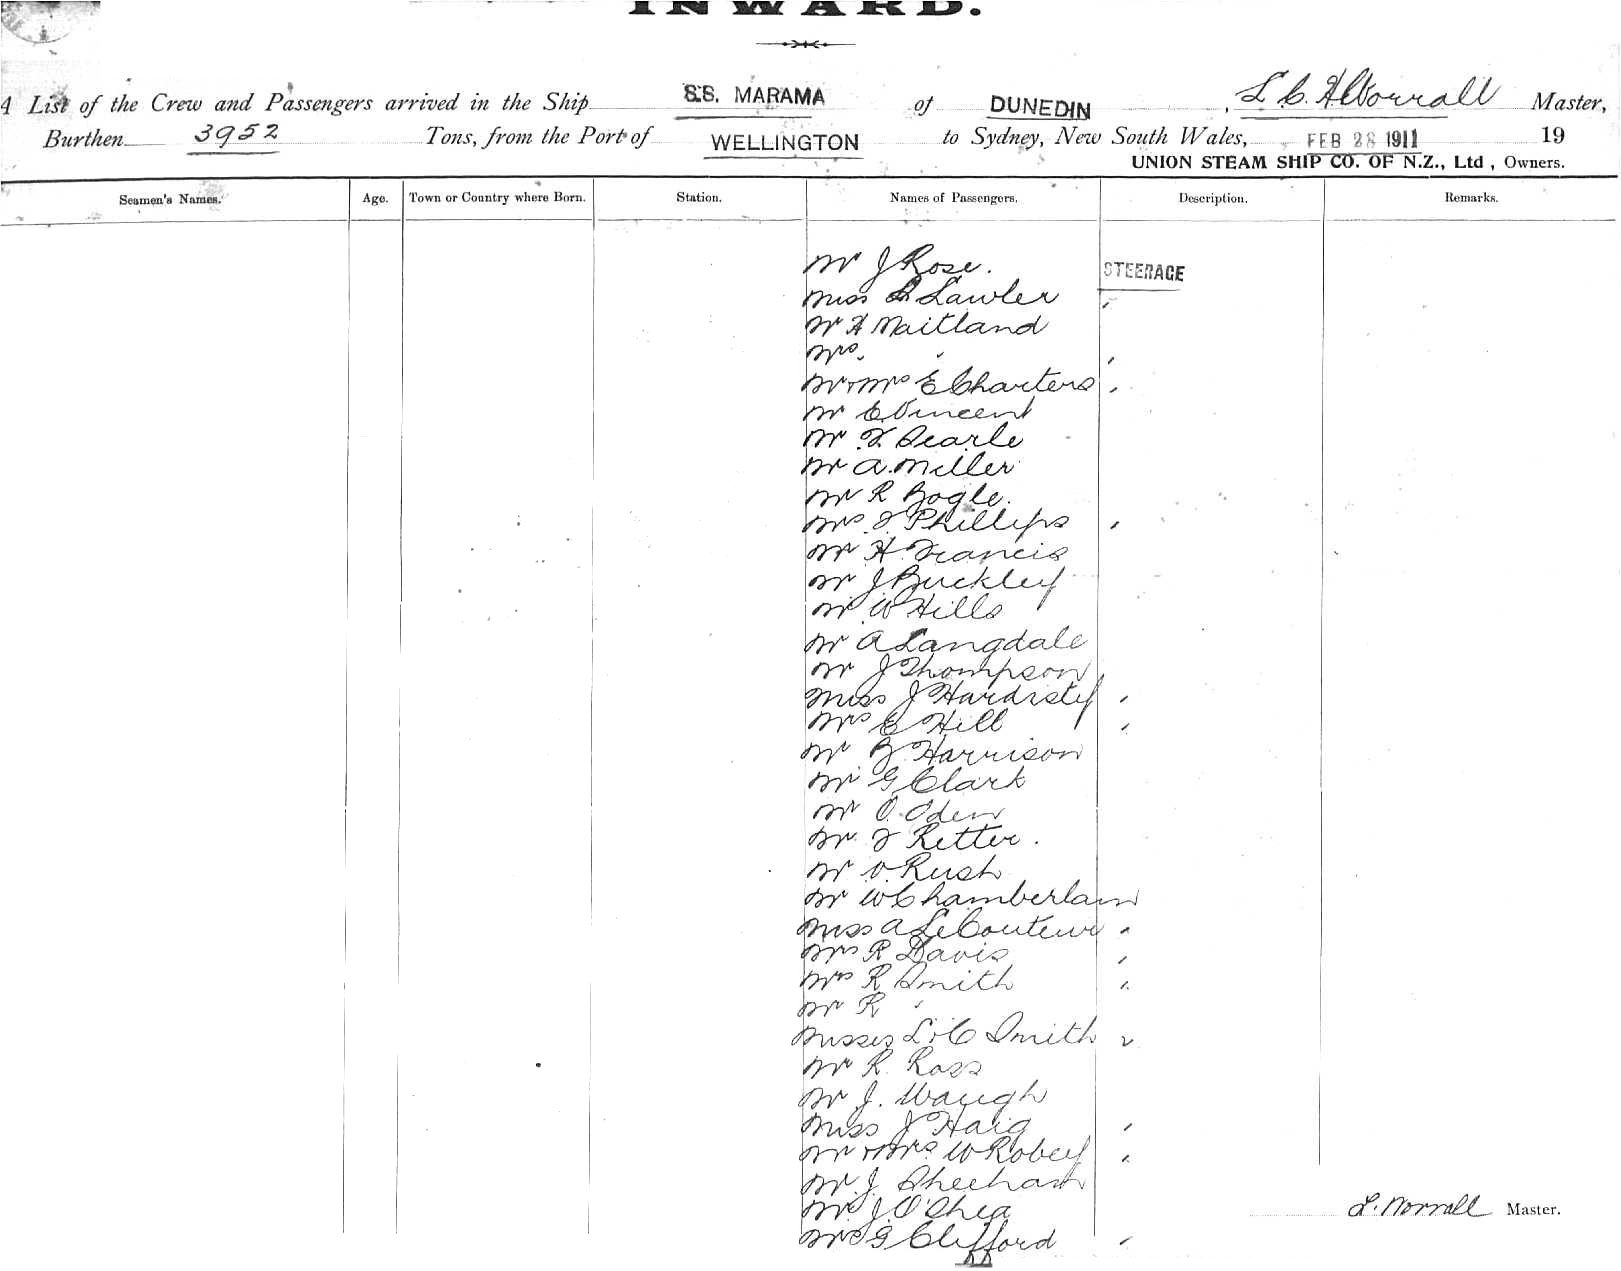 INWARD.
A List of the Crew and Passengers arrived in the Ship S.S. MARAMA of DUNEDIN, L. C. H Worrall Master,
Burthen 3952 Tons, from the Port of WELLINGTON to Sydney, New South Wales, FEB 28 1911 19
UNION STEAM SHIP CO. OF N.Z., Ltd, Owners.
Seamen's Names. Age. Town or Country where Born. Station. Names of Passengers. Description. Remarks.
Mr J Rose. STEERAGE
Miss L Lawler
Mr H Maitland
Mrs "
Mr & Mrs E Charters
Mr E Vincent
Mr F. Searle
Mr A. Miller
Mr R Bogle.
Mrs F Phillips
Mr H. Francis
Mr J Buckley
Mr W Hills
Mr A Langdale
Mr J Thompson
Miss J Hardisty
Mrs E Hill
Mr B Harrison
Mr G Clark
Mr O. Oden
Mr F Retter.
Mr O. Rush
Mr W Chamberlain
Miss A Le Couteur
Mrs R Davis
Mrs R Smith
Mr R "
Misses L & C Smith
Mr R. Ross
Mr J. Waugh
Miss J Haig
Mr & Mrs W Robey
Mr J. Sheehan
Mr J. O'Shea
Mrs G Clifford
L. Worrall Master.